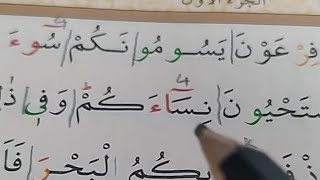 الجزء الأول
فِرْ عَوْ نَ يَسُو مُو نَكُمْ سُوءَ
4
سْتَحْيُو نَ نِسَاءَ كُمْ وَفِي ذَٰلِ
4
بِكُمُ الْبَحْرَ فَأَ